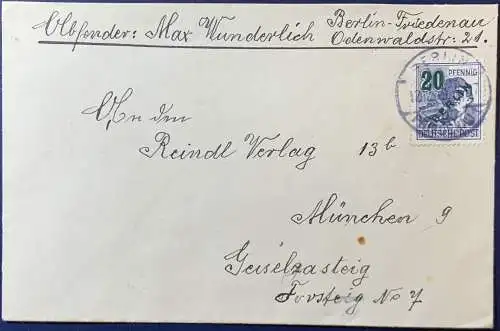 Absender: Max Wunderlich Berlin-Friedenau
Odenwaldstr: 21.
20 PFENNIG
BERLIN
DEUTSCHE POST
An den
Reindl Verlag 13b
München 9
Geiselgasteig
Forsteig No 7